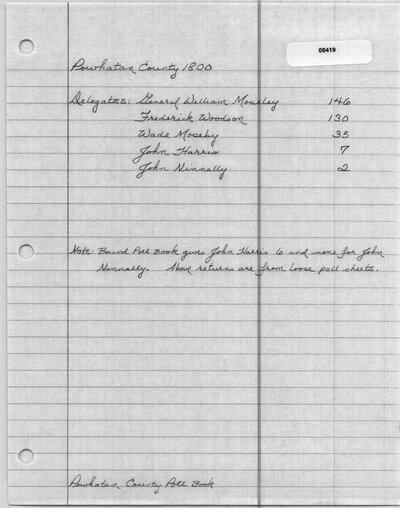 08419
Powhatan County 1800
Delegates: General William Moseley 146
Frederick Woodson 130
Wade Moseby 35
John Harris 7
John Ninnally 2
Note: Bound Poll Book gives John Harris 6 and none for John
Ninnally. Above returns are from loose poll sheets.
Powhatan County Poll Book